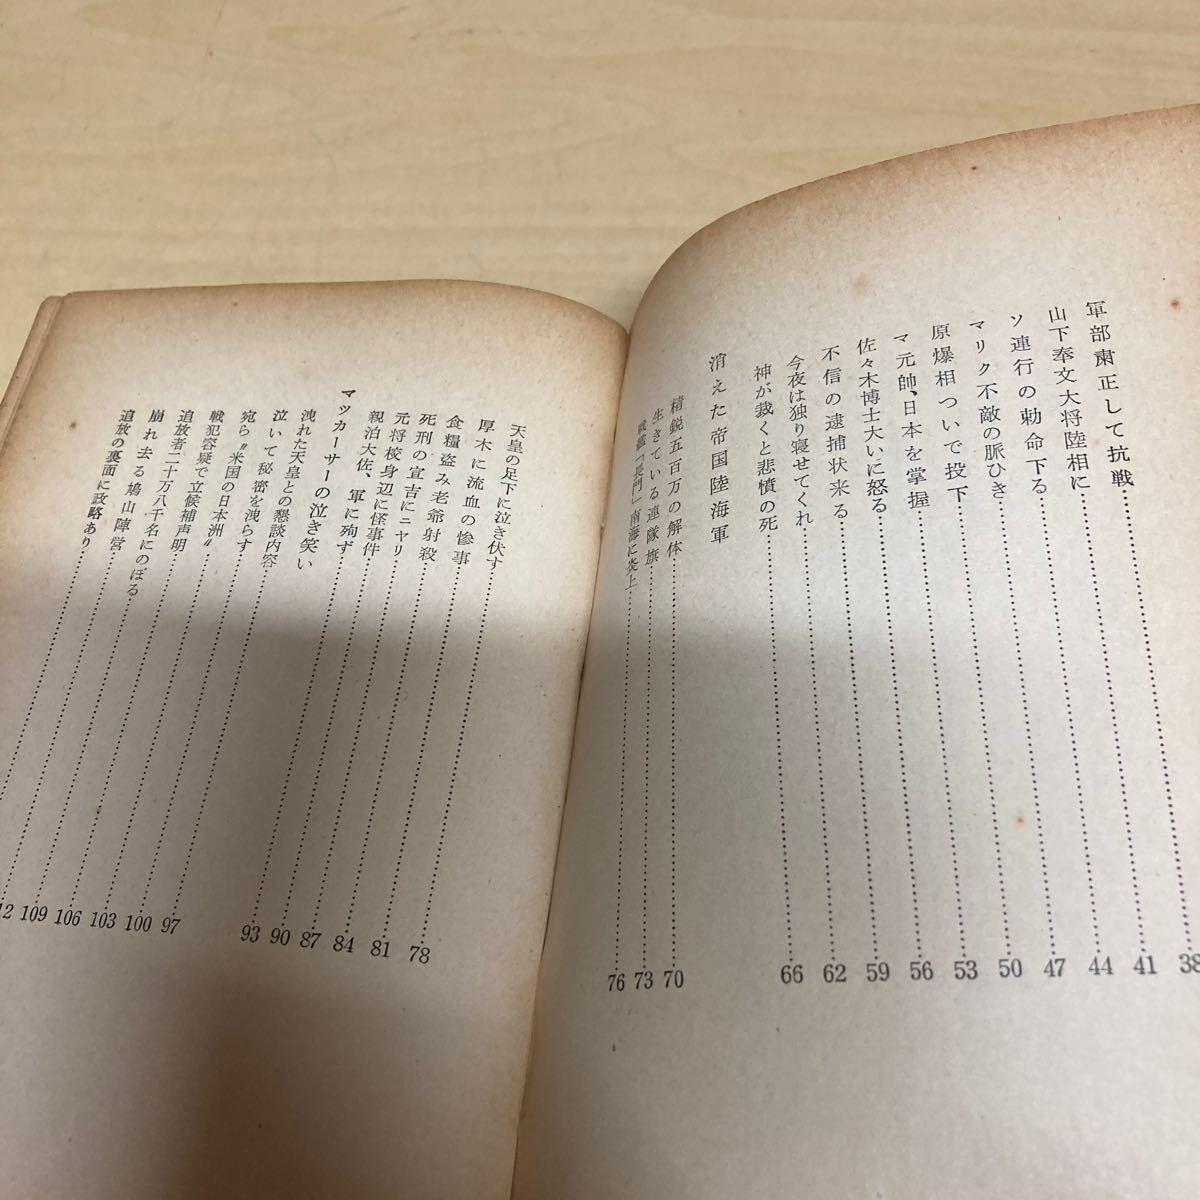 軍部粛正して抗戦……38
山下奉文大将陸相に……41
ソ連行の勅命下る……44
マリク不敵の脈ひき……47
原爆相ついで投下……50
マ元帥、日本を掌握……53
佐々木博士大いに怒る……56
不信の逮捕状来る……59
今夜は独り寝せてくれ……62
神が裁くと悲憤の死……66
消えた帝国陸海軍
精鋭五百万の解体……70
生きている連隊旗……73
戦艦「長門」南海に炎上……76
天皇の足下に泣き伏す……78
厚木に流血の惨事……81
食糧盗み老爺射殺……84
死刑の宣告にニヤリ……87
元将校身辺に怪事件……90
親泊大佐、軍に殉ず……93
マツカーサーの泣き笑い
洩れた天皇との懇談内容……97
泣いて秘密を洩らす……100
宛ら〃米国の日本洲〃……103
戦犯容疑で立候補声明……106
追放者二十万八千名にのぼる……109
崩れ去る鳩山陣営……12
追放の裏面に政略あり……